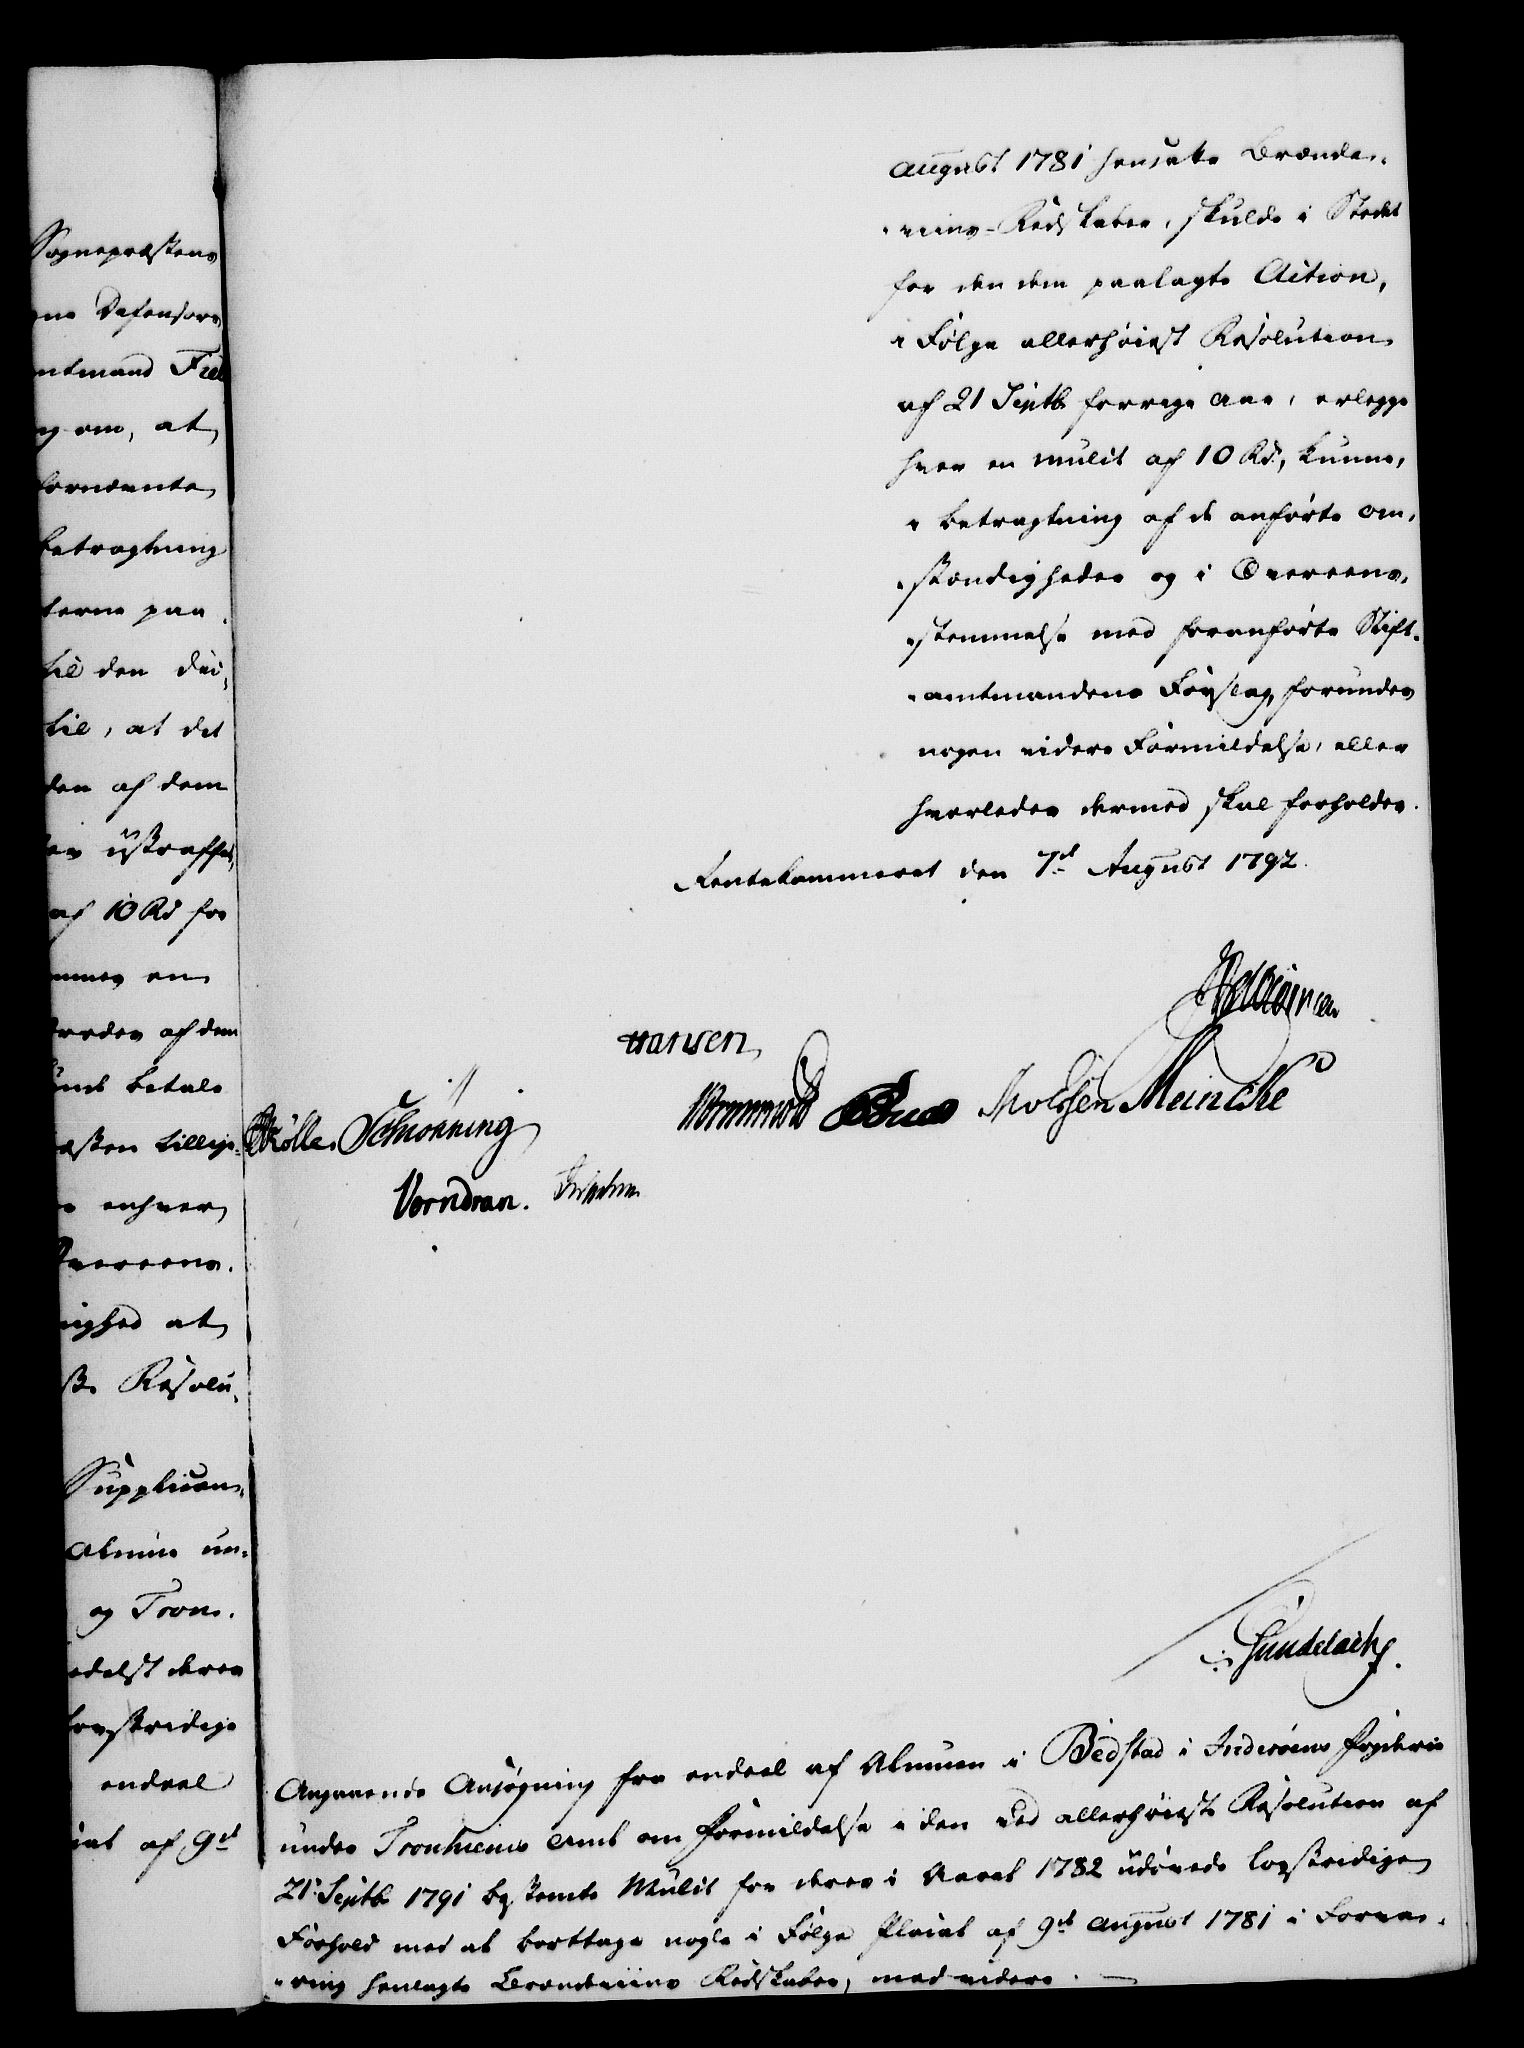 Sognepræstens
ne Defensors
mtmand Field
g om, at
fornævnte
betragtning
terne paa
til den Dei
til, at det
den af dem
en ustraffet
af 10 Rd for
mmes en
redes af dem
amt betale
æsten tillige
enhver
Overeens-
ighed at
ste Resolu-
Supplican-
Almue un-
og Tron-
edelst deres
lovstridige
endeel
cat af 9de
August 1781 hensatte Brænde-
viins-Redskaber, skulde i Stedet
for den dem paalagte Action,
i Følge allerhøiest Resolution
af 21 Septb forrige Aar, erlegge
hver en Mulct af 10 Rd., kunne,
i betragtning af de anførte om-
stændigheder og i Overeens-
stemmelse med foranførte Stift-
amtmandens Forslag, forundes
nogen videre Formildelse, eller
hvorledes dermed skal forholdes.
Rentekammeret den 7de August 1792.
Hansen
Wormskiold Meincke
Schiønning
Vorndran.
Gundelach
Angaaende Ansøgning fra endeel af Almuen i Bedstad i Inderøens Fogderie
under Tronhiems Amt om Formildelse i den ved allerhøieste Resolution af
21 Septb 1791 bestemte Mulct for deres i Aaret 1782 udøvede lovstridige
Forhold med at borttage nogle i Følge Placat af 9de August 1781 i Forva-
ring henlagte Brændeviins Redskaber, med videre.